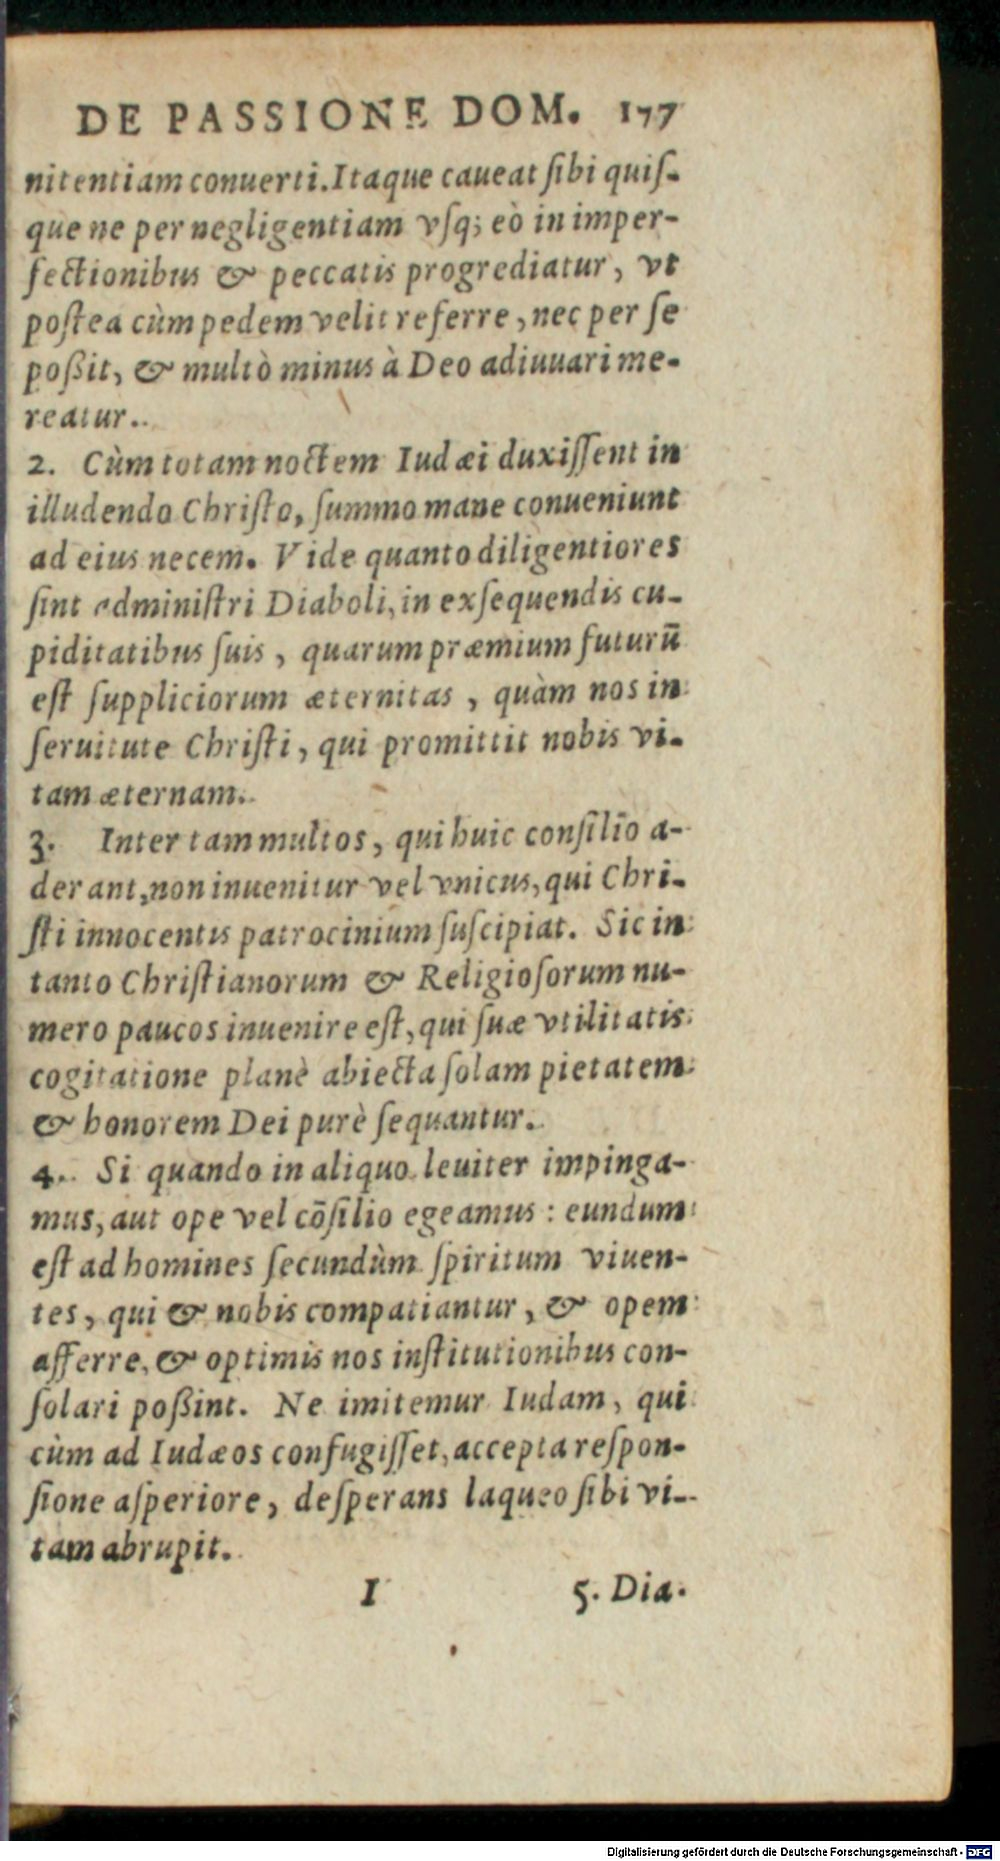 DE PASSIONE DOM. 177
nitentiam conuerti. Itaque caueat ſibi quiſ-
que ne per negligentiam vſq; eò in imper-
fectionibus & peccatis progrediatur, vt
poſtea cùm pedem velit referre, nec per ſe
poßit, & multò minus à Deo adiuuari me-
reatur.
2. Cùm totam noctem Iudæi duxiſſent in
illudendo Chriſto, ſummo mane conueniunt
ad eius necem. Vide quanto diligentiores
ſint adminiſtri Diaboli, in exſequendis cu-
piditatibus ſuis, quarum præmium futurū
eſt ſuppliciorum æternitas, quàm nos in
ſeruitute Chriſti, qui promittit nobis vi-
tam æternam.
3. Inter tam multos, qui huic conſilio a-
derant, non inuenitur vel vnicus, qui Chri-
ſti innocentis patrocinium ſuſcipiat. Sic in
tanto Chriſtianorum & Religioſorum nu-
mero paucos inuenire eſt, qui ſuæ vtilitatis
cogitatione planè abiecta ſolam pietatem
& honorem Dei purè ſequantur.
4. Si quando in aliquo leuiter impinga-
mus, aut ope vel cōſilio egeamus: eundum
eſt ad homines ſecundùm ſpiritum viuen-
tes, qui & nobis compatiantur, & opem
afferre, & optimis nos inſtitutionibus con-
ſolari poßint. Ne imitemur Iudam, qui
cùm ad Iudæos confugiſſet, accepta reſpon-
ſione aſperiore, deſperans laqueo ſibi vi-
tam abrupit.
I 5. Dia-
Digitalisierung gefördert durch die Deutsche Forschungsgemeinschaft - DFG